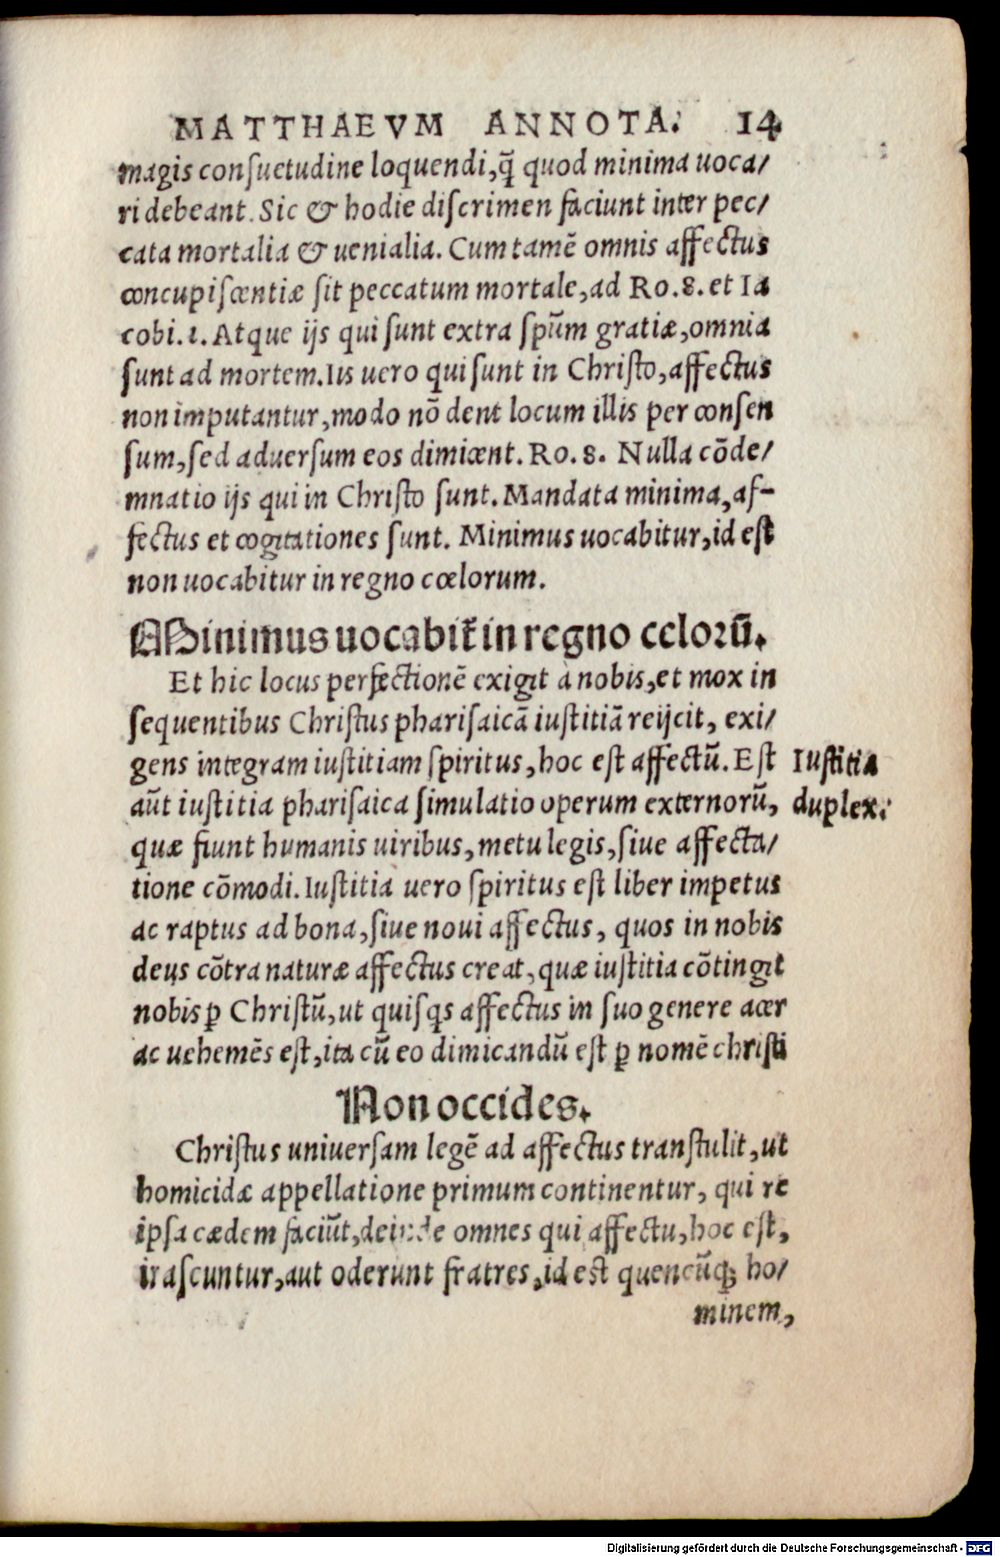 MATTHAEVM ANNOTA. 14
magis consuetudine loquendi,q̃ quod minima uoca/
ri debeant. Sic & hodie discrimen faciunt inter pec/
cata mortalia & uenialia. Cum tamẽ omnis affectus
concupiscentiæ sit peccatum mortale,ad Ro.8.et Ia
cobi.1.Atque ijs qui sunt extra spũm gratiæ,omnia
sunt ad mortem.Iis uero qui sunt in Christo,affectus
non imputantur,modo nõ dent locum illis per consen
sum,sed aduersum eos dimicent. Ro. 8. Nulla cõde/
mnatio ijs qui in Christo sunt. Mandata minima,af-
fectus et cogitationes sunt. Minimus uocabitur,id est
non uocabitur in regno cœlorum.
Minimus uocabit̃ in regno celorũ.
Et hic locus perfectionẽ exigit à nobis,et mox in
sequentibus Christus pharisaicã iustitiã reijcit, exi/
gens integram iustitiam spiritus,hoc est affectũ. Est
aũt iustitia pharisaica simulatio operum externorũ,
quæ fiunt humanis uiribus,metu legis,siue affecta/
tione cõmodi. Iustitia uero spiritus est liber impetus
ac raptus ad bona,siue noui affectus, quos in nobis
deus cõtra naturæ affectus creat,quæ iustitia cõtingit
nobis ꝑ Christũ,ut quisqs affectus in suo genere acer
ac uehemẽs est,ita cũ eo dimicandũ est ꝑ nomẽ christi
Iustitia
duplex.
Non occides.
Christus uniuersam legẽ ad affectus transtulit,ut
homicidæ appellatione primum continentur, qui re
ipsa cædem faciũt,deinde omnes qui affectu,hoc est,
irascuntur,aut oderunt fratres,id est quencũqꝫ ho/
minem,
Digitalisierung gefördert durch die Deutsche Forschungsgemeinschaft - DFG